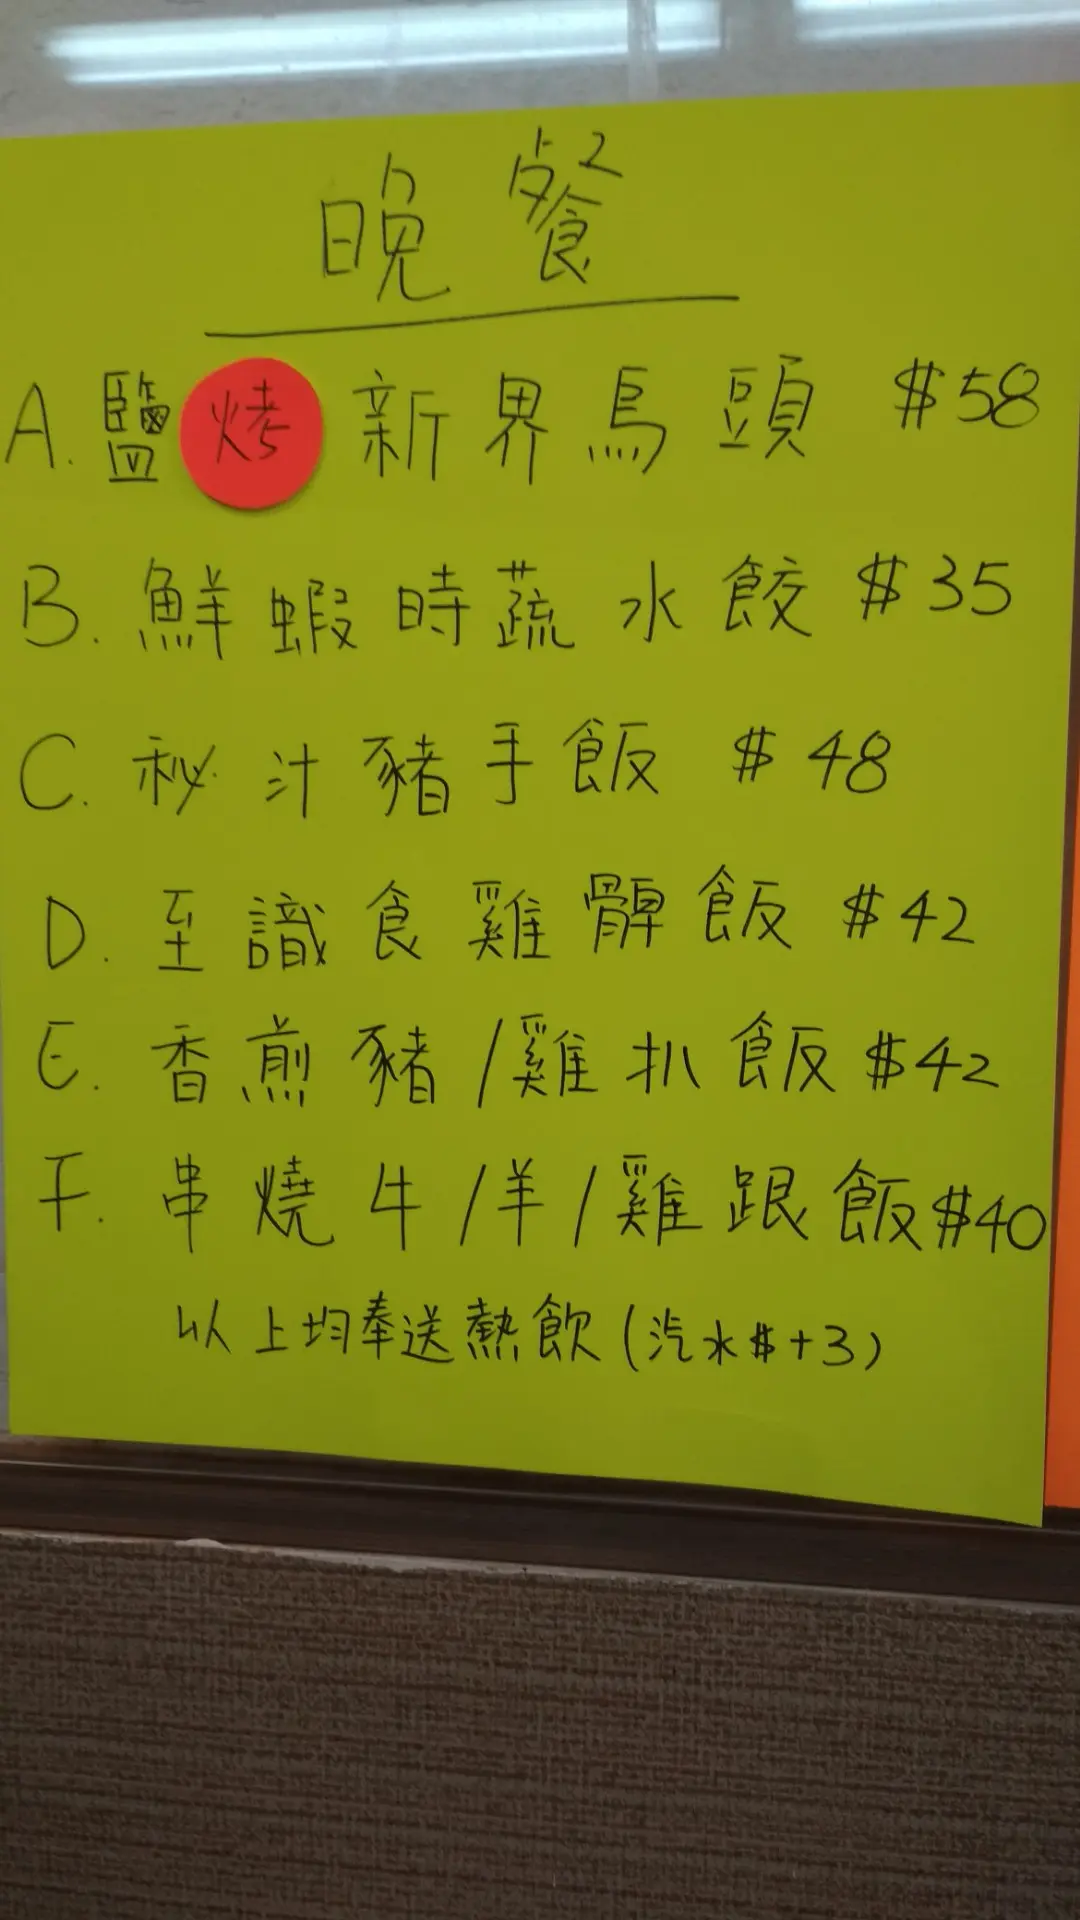 晚餐
A. 鹽烤新界烏頭 $58
B. 鮮蝦時蔬水餃 $35
C. 秘汁豬手飯 $48
D. 至識食雞髀飯 $42
E. 香煎豬/雞扒飯 $42
F. 串燒牛/羊/雞跟飯 $40
以上均奉送熱飲(汽水$+3)